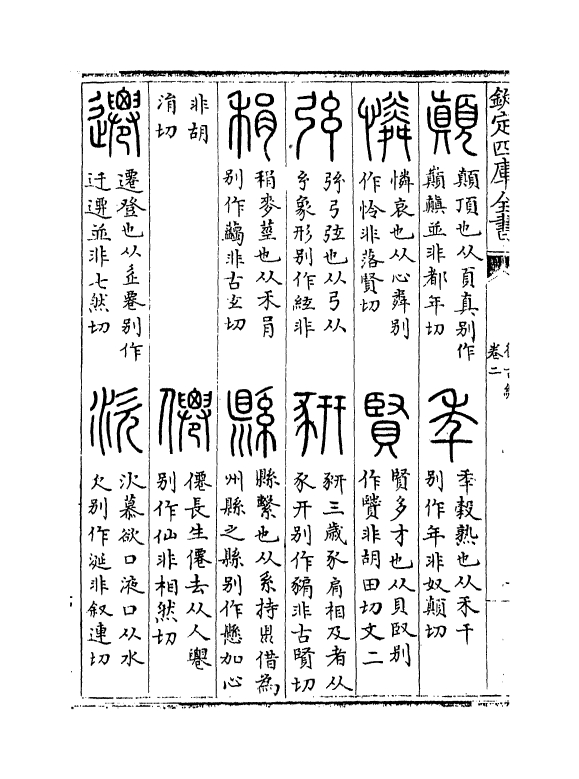 欽定四庫全書
卷二
顚
顛頂也从頁真別作
巔䕾並非都年切
秊
秊穀熟也从禾千
別作年非奴顛切
憐
憐哀也从心粦別
作怜非落賢切
賢
賢多才也从貝臤別
作贒非胡田切文二
弦
弦弓弦也从弓从
糸象形別作絃非
豣
豣三歳豕肩相及者从
豕开別作豜非古賢切
稍
稍麥莖也从禾肙
別作䕾非古玄切
縣
縣繫也从系持𥄉借為
州縣之縣別作懸加心
非胡
涓切
僊
僊長生僊去从人䙴
別作仙非相然切
遷
遷登也从辵䙴別作
迁𨗇並非七然切
㳄
㳄慕欲口液口从水
欠別作涎非叙連切